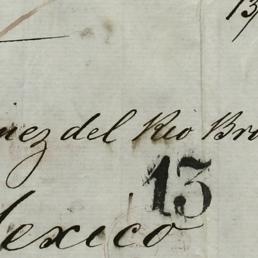 13
nez del Rio Bro
13
Mexico